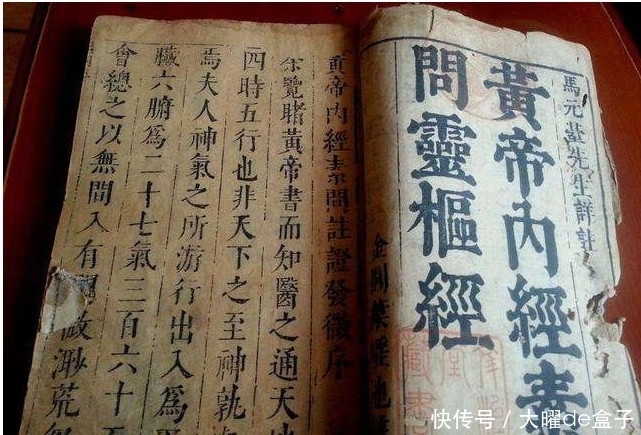 馬元臺先生詳註
黃帝內經素
問靈樞經
金閶葉
藏書
黃帝內經素問註證發微序
余覽睹黃帝書而知醫之通天地
四時五行也非天下之至神孰
焉夫人神氣之所游行出入爲
臟六腑爲二十七氣三百六十五
會總之以無間入有間微渺荒
快传号 / 大曜de盒子